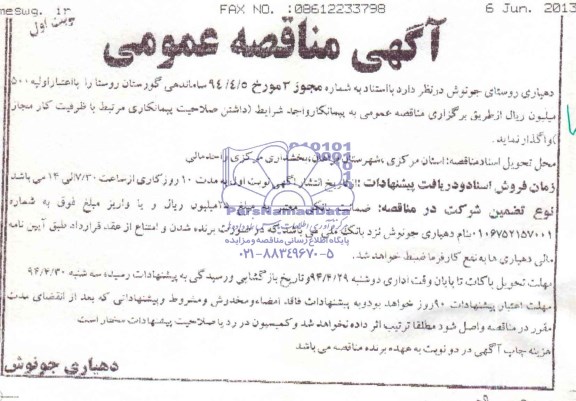 meswg. ir FAX NO. :08612233798 6 Jun. 2013
نوبت اول
آگهی مناقصه عمومی
دهیاری روستای جونوش درنظر دارد بااستناد به شماره مجوز ۳ مورخ ۹۴/۴/۵ ساماندهی گورستان روستا را بااعتبار اولیه ۵۰۰
میلیون ریال ازطریق برگزاری مناقصه عمومی به پیمانکار واجد شرایط (داشتن صلاحیت پیمانکاری مرتبط با ظرفیت کار مجاز
)واگذار نماید.
محل تحویل اسناد مناقصه: استان مرکزی ،شهرستان فراهان،بخشداری مرکزی
زمان فروش اسناد و دریافت پیشنهادات : ازتاریخ انتشار آگهی نوبت اول به مدت ۱۰ روز کاری از ساعت ۷/۳۰ الی ۱۴ می باشد
نوع تضمین شرکت در مناقصه: ضمانت بانکی میلیون ریال و یا واریز مبلغ فوق به شماره
۰۱۰۶۷۵۲۱۵۷۰۰۱ بنام دهیاری جونوش نزد بانک ملی می باشد،که در صورت برنده شدن و امتناع از عقد قرارداد طبق آیین نامه
مالی دهیاری ها به نفع کارفرما ضبط خواهد شد.
مهلت تحویل پاکات تا پایان وقت اداری دوشنبه ۹۴/۴/۲۹ و تاریخ بازگشایی و رسیدگی به پیشنهادات رسیده سه شنبه ۹۴/۴/۳۰
مهلت اعتبار پیشنهادات ۹۰ روز خواهد بود و به پیشنهادات فاقد امضاء و مخدوش و مشروط و پیشنهاداتی که بعد از انقضای مدت
مقرر در مناقصه واصل شود مطلقا ترتیب اثر داده نخواهد شد و کمیسیون در رد یا صلاحیت پیشنهادات مختار است
هزینه چاپ آگهی در دو نوبت به عهده برنده مناقصه می باشد
دهیاری جونوش
ParsNamadData
پایگاه اطلاع رسانی مناقصه و مزایده
۰۲۱-۸۸۳۴۹۶۷۰-۵